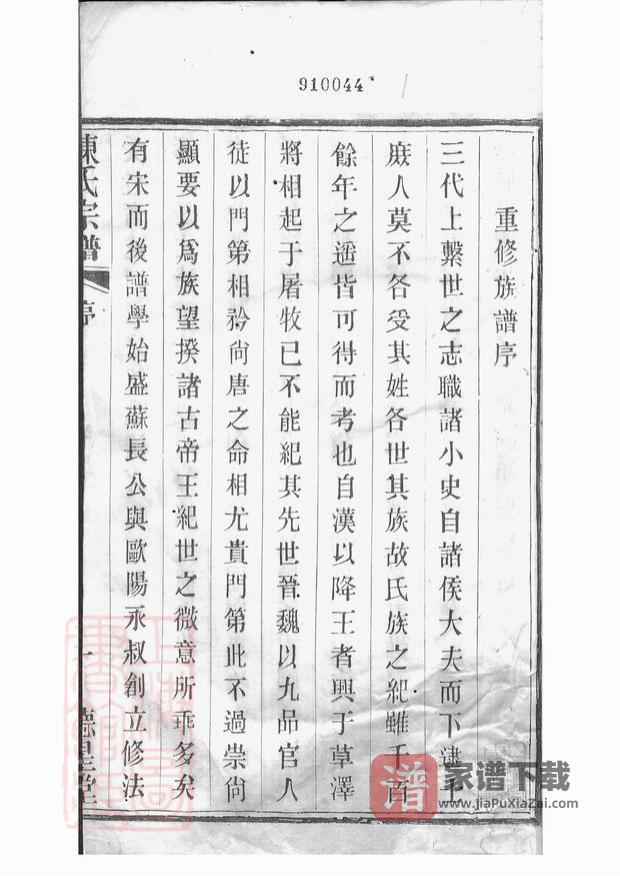 910044
重修族譜序
三代上繫世之志職諸小史自諸侯大夫而下逮士
庶人莫不各受其姓各世其族故氏族之紀雖千百
餘年之遥皆可得而考也自漢以降王者興于草澤
將相起于屠牧已不能紀其先世晉魏以九品官人
徒以門第相矜尙唐之命相尤貴門第此不過崇尙
顯要以爲族望揆諸古帝王紀世之微意所乖多矣
有宋而後譜學始盛蘇長公與歐陽永叔創立修法
陳氏宗譜 序 一 德星堂
譜 家谱下载
www.JiaPuXiaZai.com